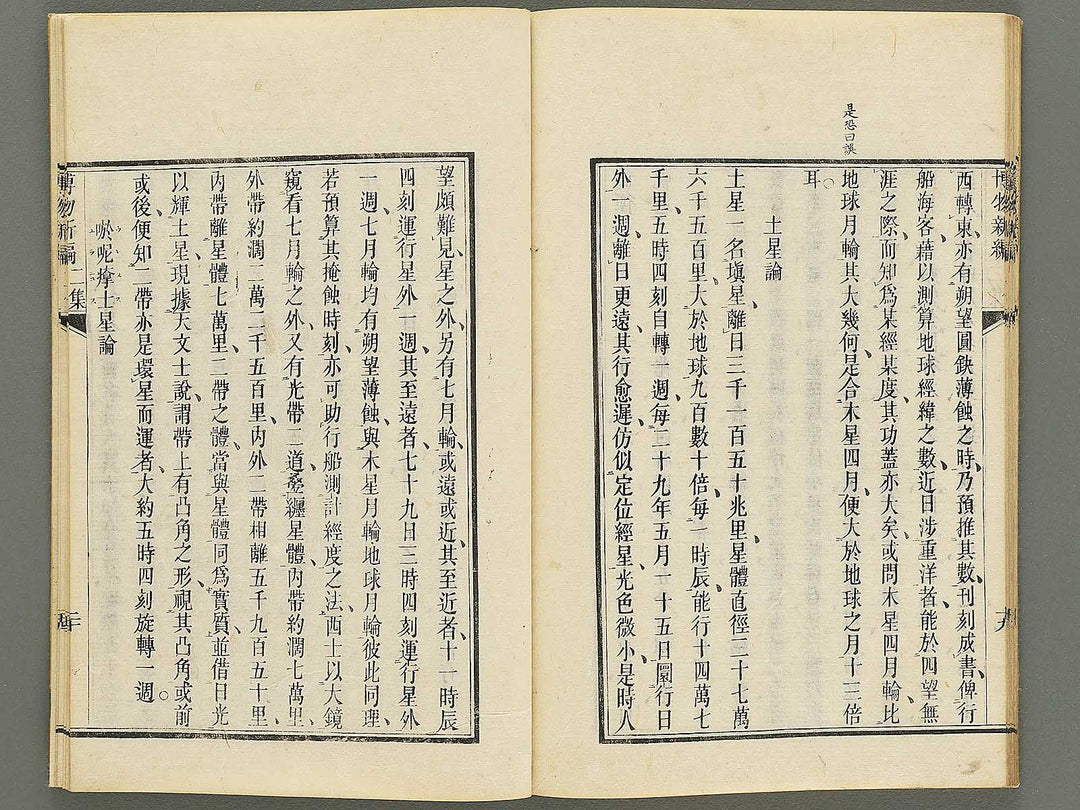 是恐曰誤
西轉東亦有朔望圓缺薄蝕之時乃預推其數刊刻成書俾行
船海客藉以測算地球經緯之數近日涉重洋者能於四望無
涯之際而知爲某經某度其功蓋亦大矣或問木星四月輪比
地球月輪其大幾何是合木星四月便大於地球之月十三倍
耳
土星論
土星一名塡星離日三千一百五十兆里星體直徑二十七萬
六千五百里大於地球九百數十倍每一時辰能行十四萬七
千里五時四刻自轉一週每二十九年五月二十五日圜行日
外一週離日更遠其行愈遲仿似定位經星光色微小是時人
望頗難見星之外另有七月輪或遠或近其至近者十一時辰
四刻運行星外一週其至遠者七十九日三時四刻運行星外
一週七月輪均有朔望薄蝕與木星月輪地球月輪彼此同理
若預算其掩蝕時刻亦可助行船測計經度之法西士以大鏡
窺看七月輪之外又有光帶二道疊纒星體內帶約濶七萬里
外帶約濶二萬二千五百里內外二帶相離五千九百五十里
內帶離星體七萬里二帶之體當與星體同爲實質並借日光
以輝土星現據天文士說謂帶上有凸角之形視其凸角或前
或後便知二帶亦是環星而運者大約五時四刻旋轉一週
唹呢士星論
博物新編 二集